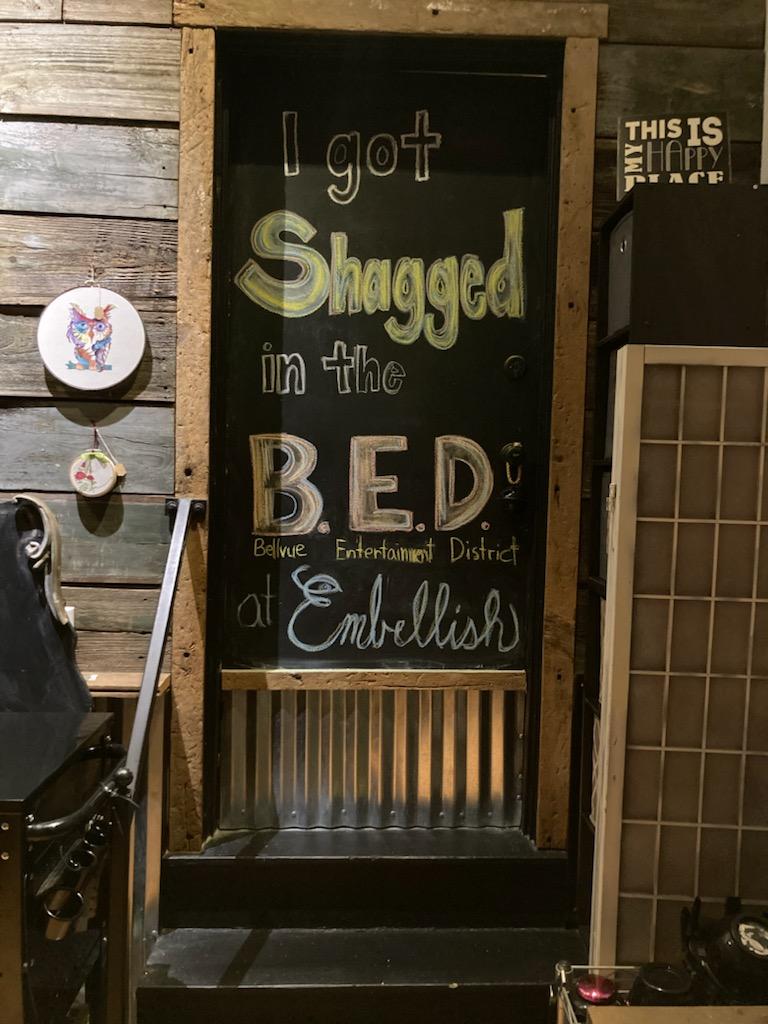 I got
Shagged
in the
B.E.D.
Bellvue Entertainment District
at Embellish
THIS IS
MY HAPPY
PLACE